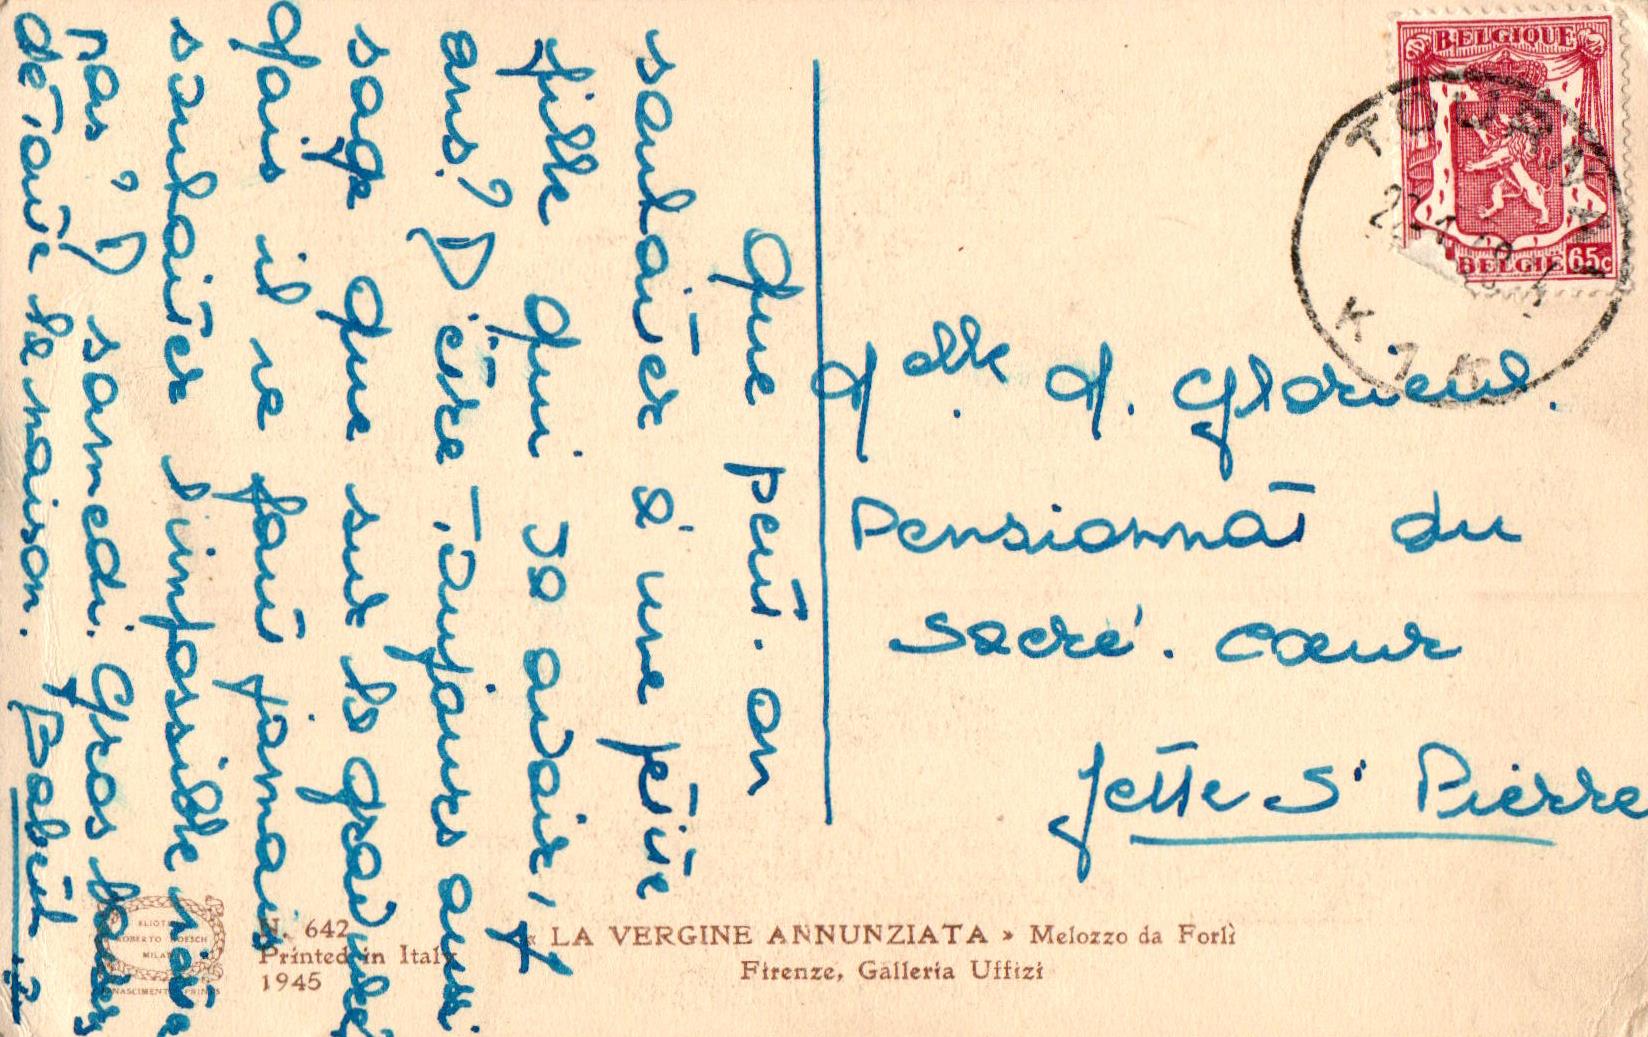 Que peut.on
souhaiter à une petite
fille qui va avoir, 7
ans? D'être toujours aussi
sage que sur la gravure?
Mais il ne faut jamais
souhaiter l'impossible n'est
pas? A samedi. Gros baisers
de toute la maison. Babeth
BELGIQUE
BELGIE 65c
TOURNAI
K 7 K
Melle. M. Glorieux.
Pensionnat du
Sacré.Cœur
Jette St Pierre
ROBERTO HOESCH
N. 642
Printed in Italy
1945
« LA VERGINE ANNUNZIATA » Melozzo da Forlì
Firenze, Galleria Uffizi